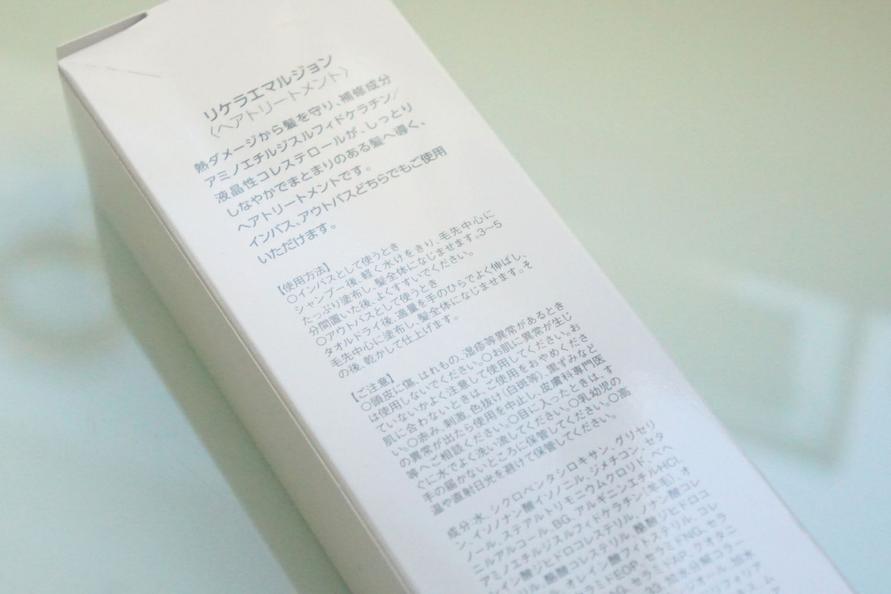 リケラエマルジョン
〈ヘアトリートメント〉
熱ダメージから髪を守り、補修成分
アミノエチルジスルフィドケラチン/
液晶性コレステロールが、しっとり
しなやかでまとまりのある髪へ導く、
ヘアトリートメントです。
インバス、アウトバスどちらでもご使用
いただけます。
【使用方法】
○インバスとして使うとき
シャンプー後、軽く水けをきり、毛先中心に
たっぷり塗布し、髪全体になじませます。3〜5
分間置いた後、よくすすいでください。
○アウトバスとして使うとき
タオルドライ後、適量を手のひらでよく伸ばし、
毛先中心に塗布し、髪全体になじませます。そ
の後、乾かして仕上げます。
【ご注意】
○頭皮に傷、はれもの、湿疹等異常があるとき
は使用しないでください。○お肌に異常が生じ
ていないかよく注意して使用してください。お
肌に合わないときは、ご使用をおやめくださ
い。○赤み、刺激、色抜け(白斑等)、黒ずみなど
の異常が出たら使用を中止し、皮膚科専門医
等へご相談ください。○目に入ったときは、す
ぐに水でよく洗い流してください。○乳幼児の
手の届かないところに保管してください。○高
温や直射日光を避けて保管してください。
成分:水、シクロペンタシロキサン、グリセリ
ン、イソノナン酸イソノニル、ジメチコン、セタ
ノール、ステアルトリモニウムクロリド、ベヘ
ニルアルコール、BG、アルギニンエチルHCl、
アミノエチルジスルフィドケラチン(羊毛)、オ
レイン酸ジヒドロコレステリル、